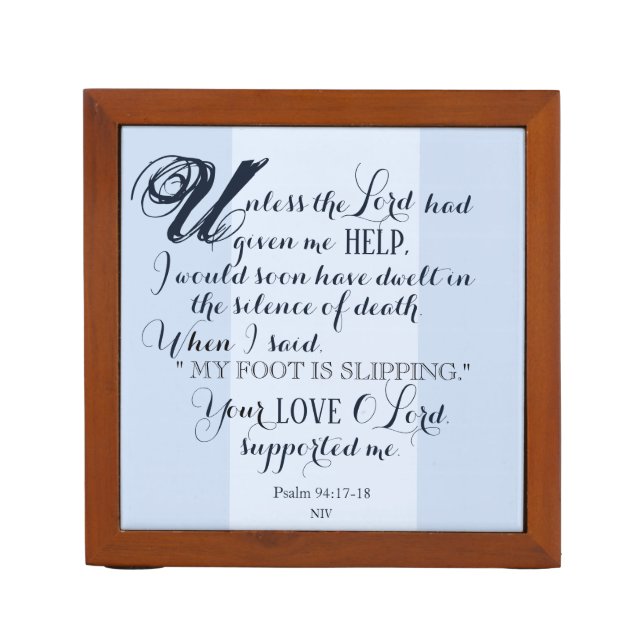 Unless the Lord had
given me HELP,
I would soon have dwelt in
the silence of death.
When I said,
" MY FOOT IS SLIPPING,"
Your LOVE O Lord,
supported me.
Psalm 94:17-18
NIV